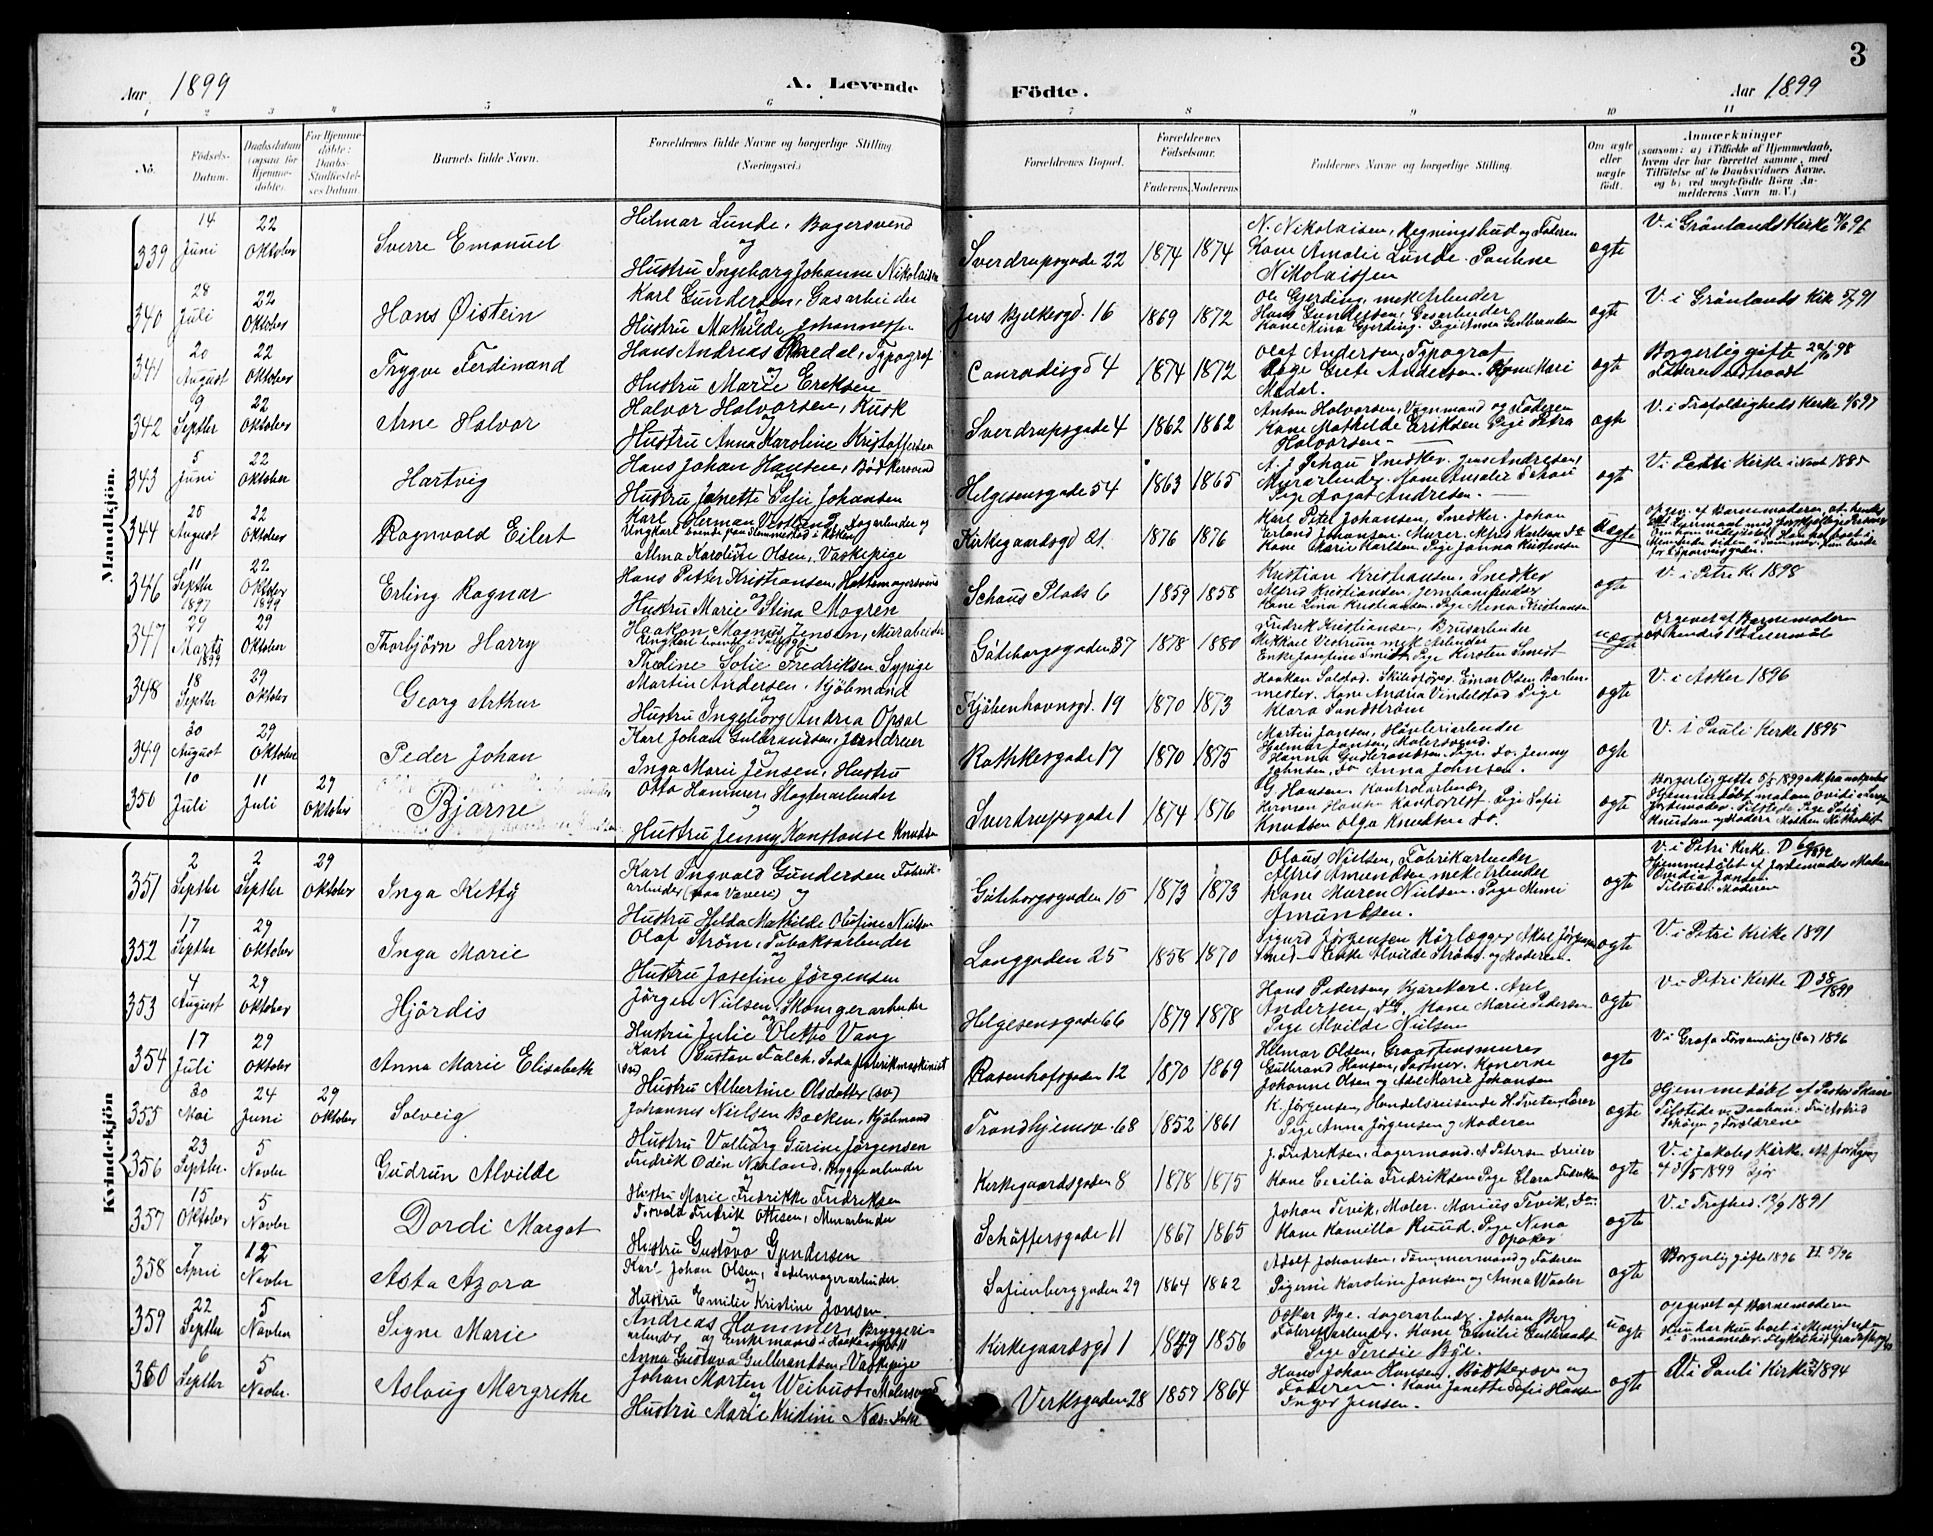 3
Aar 1899 A. Levende Fødte. Aar 1899
1 2 3 4 5 6 7 8 9 10 11
No. Fødsels-Datum. Daabsdatum (ogsaa for Hjemmedøbte). For Hjemmedøbte: Daabs-Stadfæstelses Datum. Barnets fulde Navn. Forældrenes fulde Navne og borgerlige Stilling (Næringsvei.) Forældrenes Bopæl. Forældrenes Fødselsaar. Faderens. Moderens. Faddernes Navne og borgerlige Stilling. Om ægte eller uægte født. Anmærkninger (saasom: a) i Tilfælde af Hjemmedaab, hvem der har forrettet samme, med Tilføielse af to Daabsvidners Navne, og b) ved uegtefødte Børn Anmelderens Navn m. V.)
Mandkjön.
339 14 Juni 22 Oktober Sverre Emanuel Hilmar Lunde, Bagersvend og Hustru Ingeborg Johanne Nikolaisen Sverdrupsgade 22 1874 1874 N. Nikolaisen, Regningsbud og Faderen Kone Amalie Lunde. Pauline Nikolaissen ægte V. i Grønlands Kirke
340 28 Juli 22 Oktober Hans Øistein Karl Gundersen, Gasarbeider og Hustru Mathilde Johannessen Jens Bjelkesgd 16 1869 1872 Ole Gjerding, mek Arbeider Hans Gundersen, Gasarbeider Kone Nina Gjerding. Pige Anna Gulbrandsen ægte V. i Grønlands Kirke 91
341 20 August 22 Oktober Trygve Ferdinand Hans Andreas Medal, Typograf og Hustru Marie Eriksen Conradisgd 4 1874 1872 Olaf Andersen, Typograf Pige Grete Andersen. Kone Mari Medal. ægte Borgerlig gifte 98
342 9 Septbr 22 Oktober Arne Halvor Halvor Halvorsen, Kusk og Hustru Anna Karoline Kristoffersen Sverdrupsgade 4 1862 1862 Anton Halvorsen, Vognmand og Faderen Kone Mathilde Eriksen Pige Petra Halvorsen ægte V. i Trefoldigheds Kirke 97
343 5 Juni 22 Oktober Hartvig Hans Johan Hansen, Bødkersvend og Hustru Janette Sofie Johansen Helgesensgade 54 1863 1865 A. J. Schau Snedker. Jens Andresen, Murarbeider. Kone Amalie Schau Pige Aagot Andresen. ægte V. i Petri Kirke i Novb 1885
344 25 August 22 Oktober Ragnvald Eilert Karl Herman Ungkarl og Alma Karoline Olsen, Vaskepige Kirkegaardsgd 21. 1876 1876 Karl Peter Johansen, Snedker. Johan Erland Johansen, Murer. Alfred Karlsen Do Kone Marie Karlsen Pige Janna Kristensen uægte
346 11 Septbr 1897 22 Oktober 1899 Erling Ragnar Hans Petter Kristiansen, Hattemagersvend og Hustru Marie Stina Mogren Schaus Plads 6 1859 1858 Kristian Kristiansen, Snedker Alfred Kristiansen, Jernbanearbeider Kone Lina Kristiansen. Pige Mina Kristiansen ægte V. i Petri K. 1898
347 29 Marts 1899 29 Oktober Thorbjørn Harry Haakon Magnus Jensen, Murarbeider og Thedine Sofie Fredriksen Sypige Gøteborgsgaden 37 1878 1880 Fredrik Kristiansen, Brusarbeider Mikkael Vestrum mek Arbeider Enke Josefine Smedt, Pige Kirsten Smedt uægte opgivet af Barnemoderen
348 18 Septbr 29 Oktober Georg Arthur Martin Andersen, Kjøbmand og Hustru Ingeborg Andrea Opsal Kjøbenhavnsgd. 19 1870 1873 Haakon Solstad, Skibsfører Einar Olsen Karla Sandstrøm ægte V. i Asker 1896
349 30 August 29 Oktober Peder Johan Karl Johan Gulbrandsen, Jerndreier og Inga Marie Jensen, Hustru Rathkesgade 17 1870 1875 Martin Jansen, Høvleriarbeider Hjalmar Jansen, Malersvend. Hanna Gulbrandsen. Pige. Do. Jenny Johnsen, Do Anna Johnsen. ægte V. i Pauli Kirke 1895
350 10 Juli 11 Juli 29 Oktober Bjarne Otto Hammer, Slagterarbeider og Hustru Jenny Konstanse Knudsen Sverdrupsgade 1 1874 1876 G. Hansen, Kontrolarbeider Herman Hansen Kontorist. Pige Sofie Knudsen Olga Knudsen Do. ægte
Kvindekjön
351 2 Septbr 2 Septbr 29 Oktober Inga Ketty Karl Ingvald Gundersen Fabrikarbeider (paa Væveri) og Hustru Hilda Mathilde Olufine Nielsen Gøteborgsgaden 15 1873 1873 Olaus Nielsen, Fabrikarbeider Alfred Amundsen mek Arbeider Kone Maren Nielsen. Pige Mimi Amundsen. ægte V. i Petri Kirke.
352 17 Septbr 29 Oktober Inga Marie Olaf Strøm, Tobaksarbeider og Hustru Josefine Jørgensen Langgaden 25 1858 1870 Sigurd Jørgensen Rørlægger Aksel Jørgensen Smed Enke Alvilde Strøm og Moderen. ægte V. i Petri Kirke 1891
353 4 August 29 Oktober Hjördis Jörgen Nielsen, Skomagerarbeider og Hustru Julie Olettha Vang Helgesensgade 66 1879 1878 Hans Pedersen, Kjørekarl. Axel Andersen, Do. Kone Marie Pedersen Pige Alvilde Nielsen ægte V. i Petri Kirke D 28/1899
354 17 Juli 29 Oktober Anna Marie Elisabeth Karl Gustav Falch, Sodafabrikmaskinist (sv) Hustru Albertine Olsdotter (sv) Rosenhofsgaden 12 1870 1869 Hilmar Olsen, Graastensmurer Gulbrand Hansen, Portner. Konerne Johanne Olsen og Adel Marie Johansen ægte V. i Grafa Församling (sv) 1896
355 30 Mai 24 Juni 29 Oktober Solveig Johannes Nielsen Bakken, Kjøbmand og Hustru Valborg Gurine Jørgensen Trondhjemsv. 68 1852 1861 K. Jørgensen, Handelsreisende H. Tveten, Lærer Pige Anna Jørgensen og Moderen ægte Hjemmedøbt af Pastor Skaar
356 23 Septbr. 5 Novbr Gudrun Alvilde Fredrik Odin Narland, Bryggearbeider og Hustru Marie Fredrikke Fredriksen Kirkegaardsgaden 8 1878 1875 J. Fredriksen, Lagermand. A Petersen Dreier Kone Cecilia Fredriksen Pige Clara Fredriksen ægte V. i Jakobs Kirke.
357 15 Oktober 5 Novber Dordi Margot Torvald Fredrik Ottesen, Murarbeider Hustru Gustava Gundersen Schäffersgade 11 1867 1865 Johan Tevik, Maler. Marius Tevik, Do. Kone Kamilla Ruud. Pige Nina ægte V. i Trefhed. 1891
358 7 April 12 Novbr Asta Azora Karl Johan Olsen, Sadelmagerarbeider og Hustru Emilie Kristine Jonsen Sofienberggaden 29 1864 1862 Adolf Johansen, Tømmermand og Faderen Pigerne Karoline Jansen og Anna Waaler ægte Borgerlig gifte 1896
359 22 Septbr 5 Novbr Signe Marie Andreas Hammer, Bryggeriarbeider og Enkemand Anna Gustava Gulbrandsen, Vaskepige Kirkegaardsgd 1 1849 1856 Oskar Bye. Lagerarbeider. Johan Berg Fabrikarbeider. Kone Emilie Gulbrandt Pige Teresie Bye. uægte opgivet af Barnemoderen
360 6 Septbr 5 Novbr. Aslaug Margrethe Johan Marten Weibust, Malersvend og Hustru Marie Kristine Næs Verksgaden 28 1857 1864 Hans Johan Hansen, Bødkersv. og Faderen. Kone Janette Sofie Hansen Inger Jensen. ægte V. i Pauli Kirke 1894